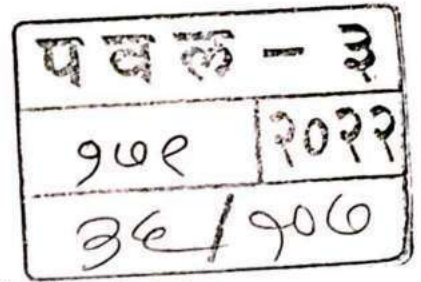 पवल - ३
१७९ २०२२
३९/१०७